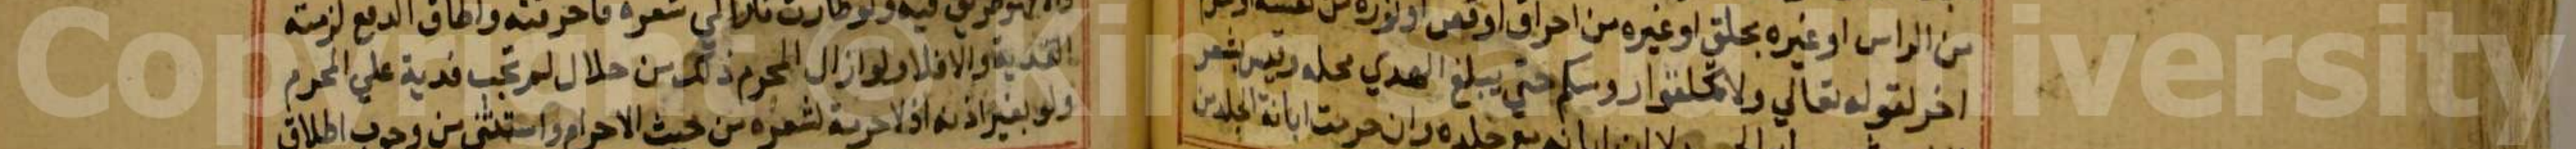 من الراس او غيره بحلق او غيره من احراق او قص او نورة من نفسه او محرم
اخر لقوله تعالي ولا تحلقوا روسكم حتي يبلغ الهدي محله وقيس بشعر
مع جلده وان حرمت ابانة الجلد من
فيه ولو طارت نار الي شعره فاحرقته واطاق الدفع لزمته
الفدية والا فلا ولو ازال المحرم ذلك من حلال لم تجب فدية علي المحرم
ولو بغير اذنه اذ لا حرمة لشعره من حيث الاحرام واستثني من وجوب اطلاق
Copyright © King University